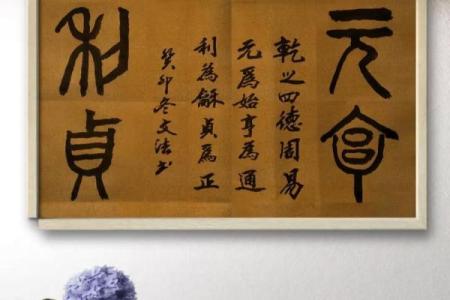 元亨
乾之四德周易
元為始亨為通
利為龢貞為正
癸卯冬文法书
利貞